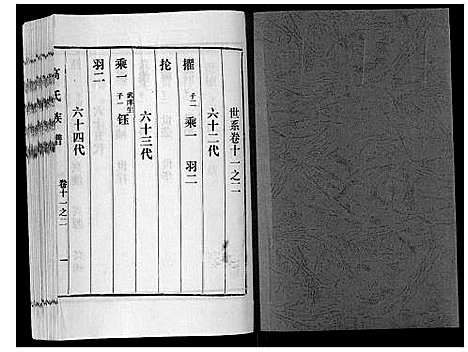 世系卷十一之二
六十二代
擢 子二 乘一 羽二
抡
六十三代
乘一 武庠生 子一 鈺
羽二
六十四代
氏族譜
卷十一之二
一